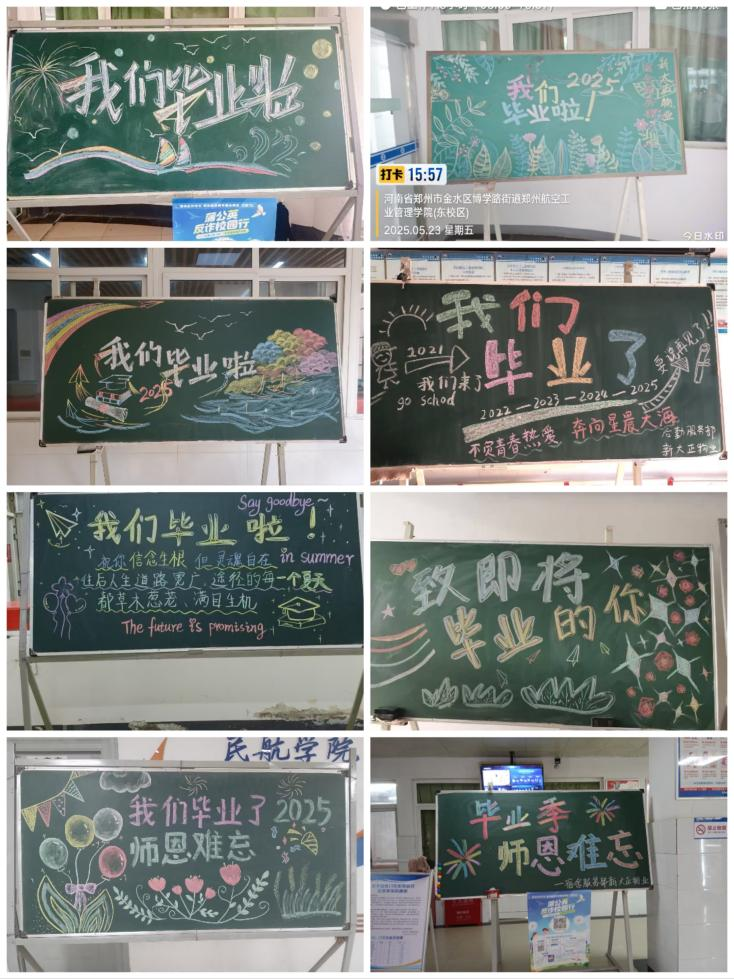 我们毕业啦
蒲公英
反诈校园行
我们
2025
毕业啦!
新大正物业
打卡 15:57
河南省郑州市金水区博学路街道郑州航空工
业管理学院(东校区)
2025.05.23 星期五
今日水印
我们毕业啦
2025
我们
毕业了
2021
我们来了
go school
2022—2023—2024—2025
要说再见了!!
不负青春热爱
奔向星晨大海
后勤服务部
新大正物业
Say goodbye~
我们毕业啦!
祝你信念生根 但灵魂自在 in summer
往后人生道路宽广,途径的每一个夏天
都草木葱茏,满目生机
The future is promising
致即将
毕业的你
民航学院
我们毕业了2025
师恩难忘
毕业季
师恩难忘
—宿舍服务部新大正物业
蒲公英
反诈校园行